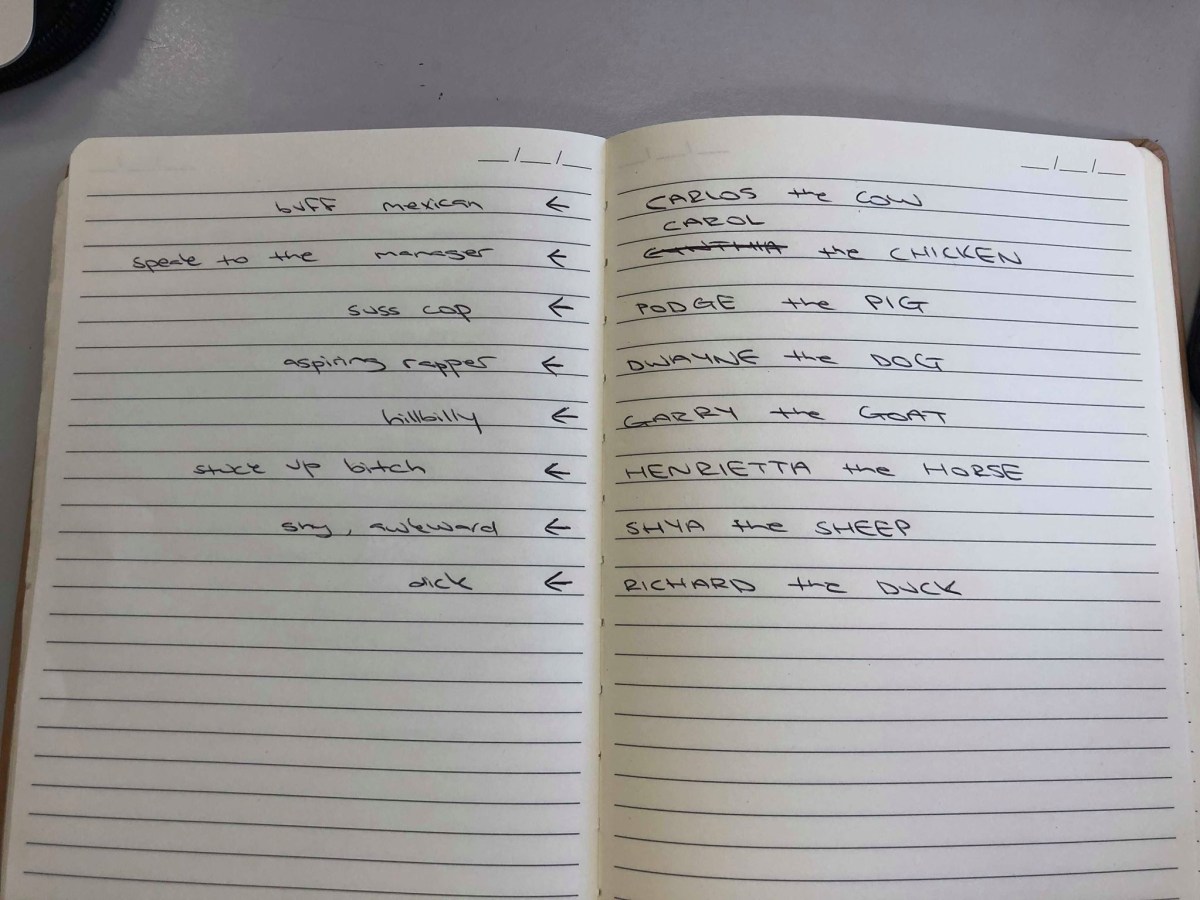 buff mexican ← CARLOS the COW
CAROL
speak to the manager ← CINTHIA the CHICKEN
suss cop ← PODGE the PIG
aspiring rapper ← DWAYNE the DOG
hillbilly ← GARRY the GOAT
stuck up bitch ← HENRIETTA the HORSE
shy, awkward ← SHYA the SHEEP
dick ← RICHARD the DUCK